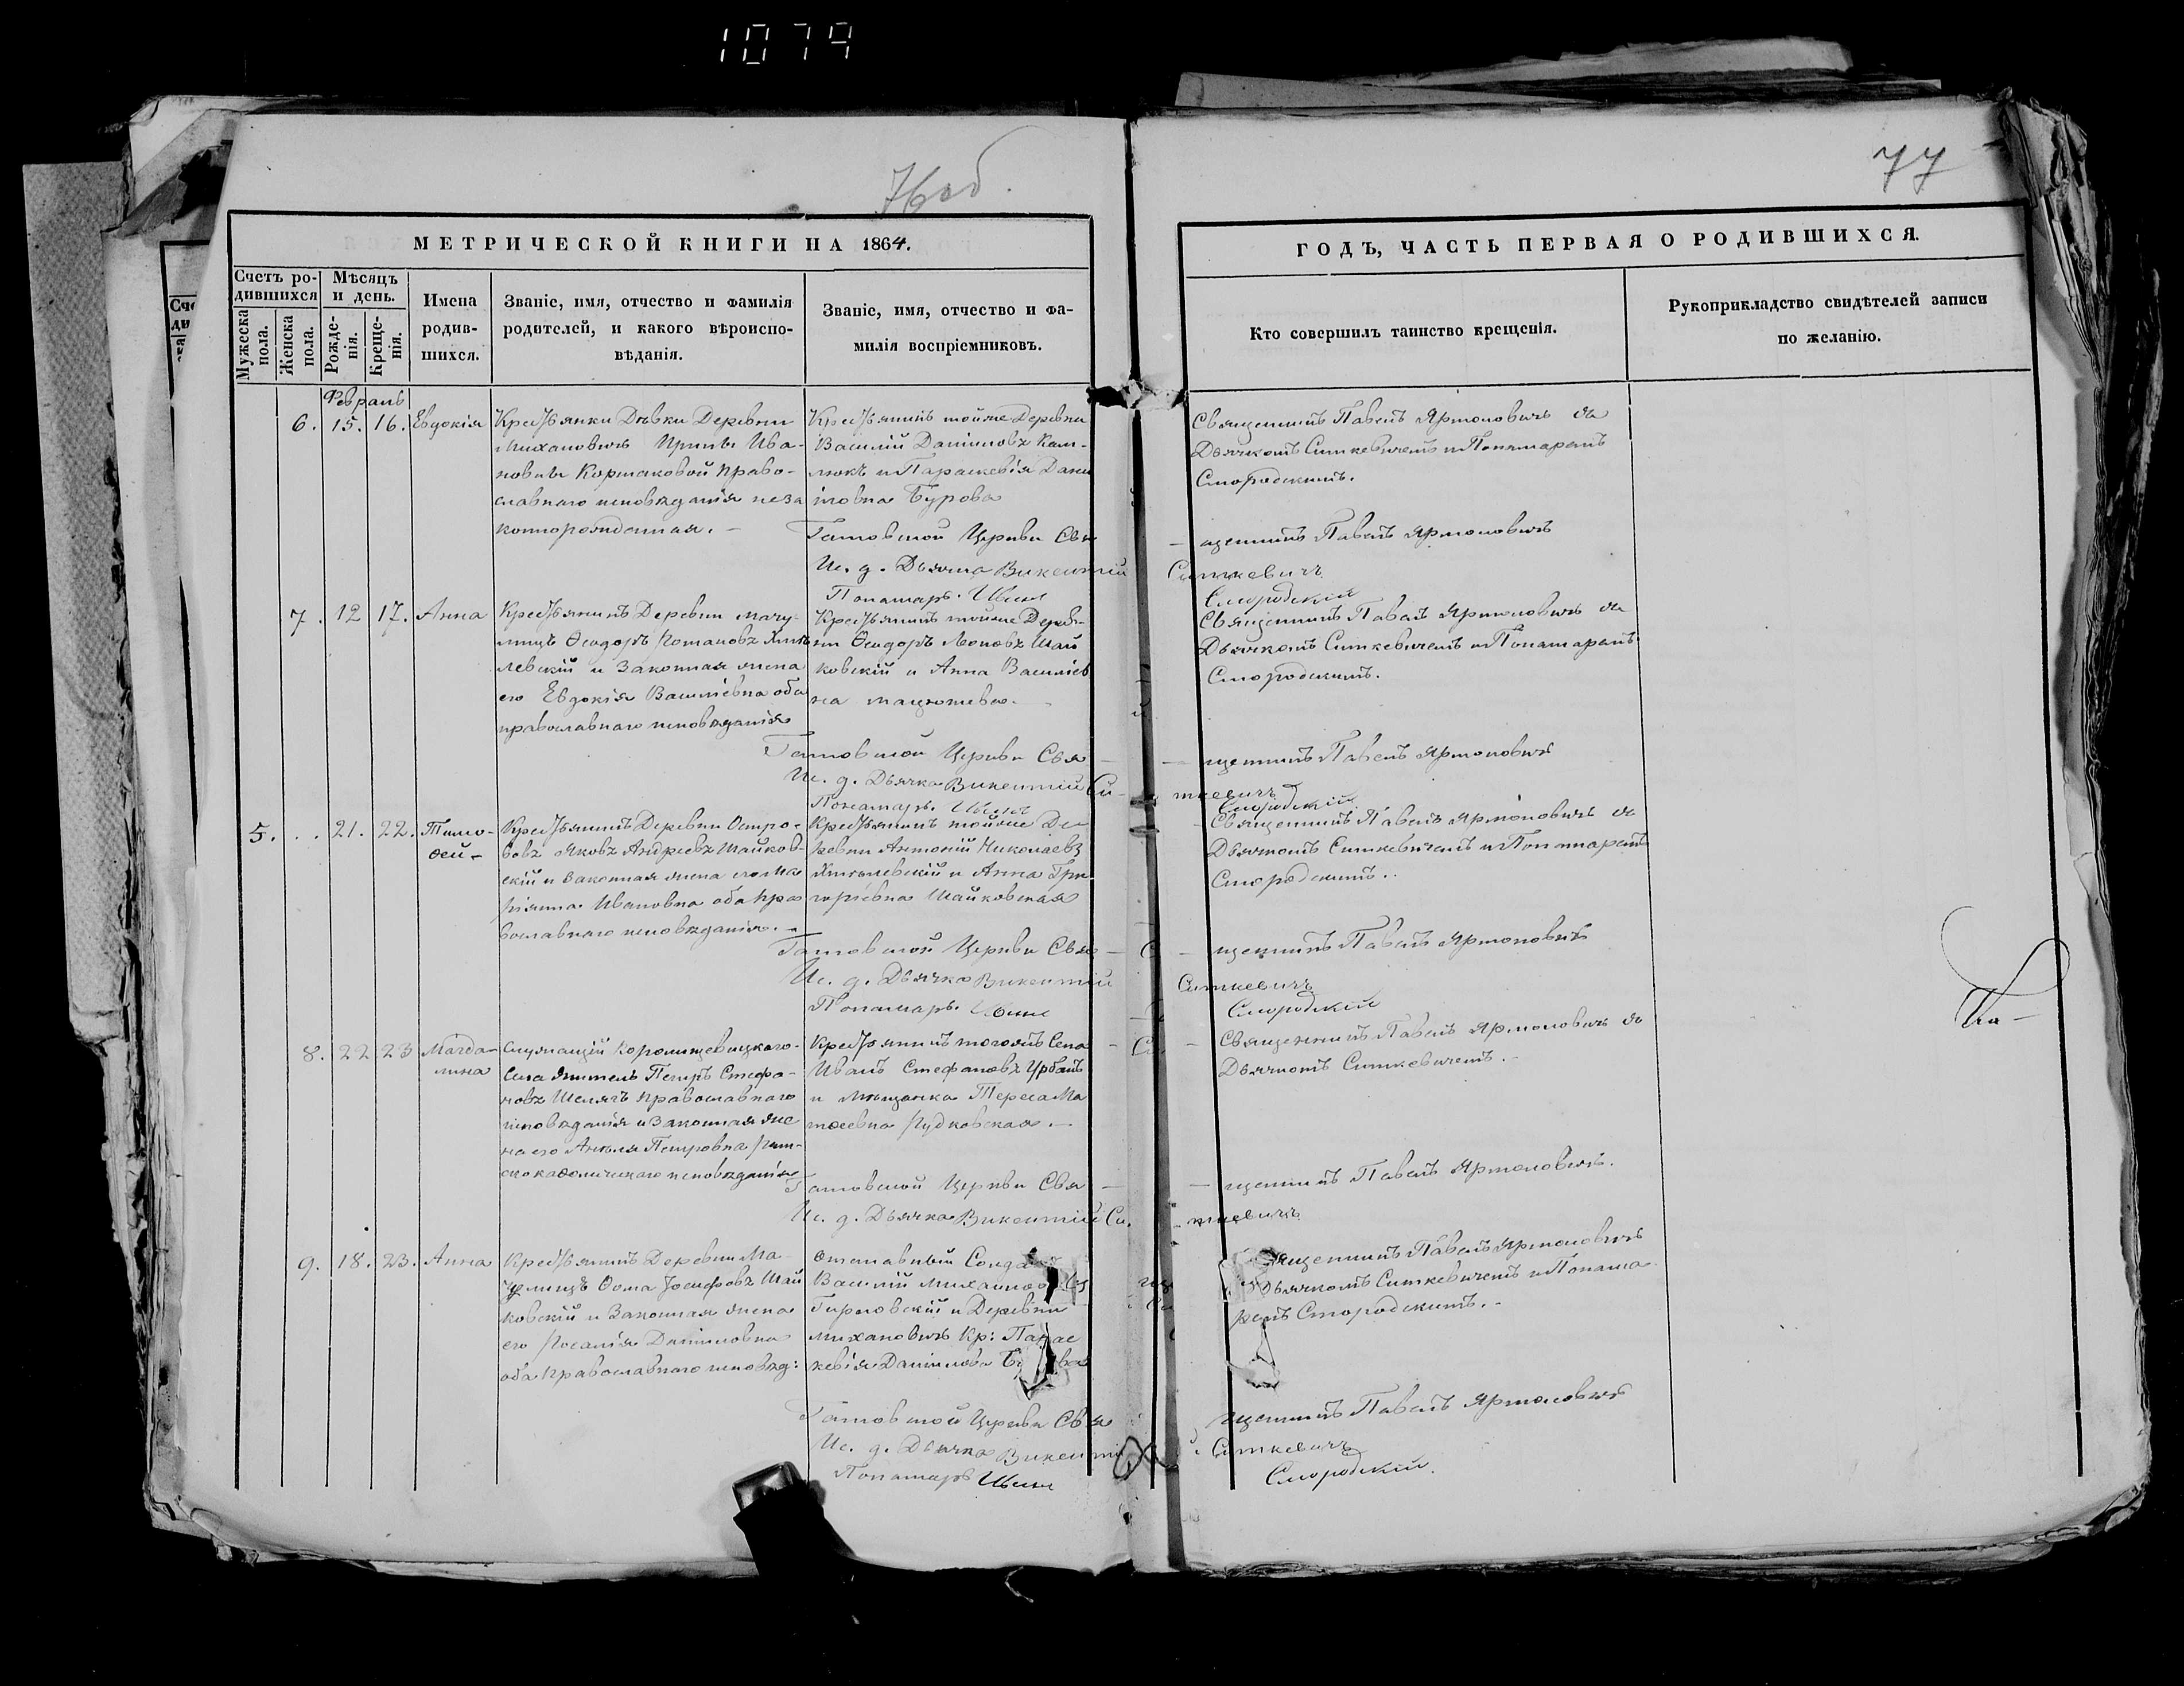 1079
76 об.
77
МЕТРИЧЕСКОЙ КНИГИ НА 1864.
ГОДЪ, ЧАСТЬ ПЕРВАЯ О РОДИВШИХСЯ.
Счетъ родившихся
Мужеска пола.
Женска пола.
Мѣсяцъ и день.
Рожденія.
Крещенія.
Имена родившихся.
Званіе, имя, отчество и фамилія родителей, и какого вѣроисповѣданія.
Званіе, имя, отчество и фамилія воспріемниковъ.
Кто совершилъ таинство крещенія.
Рукоприкладство свидѣтелей записи по желанію.
Февраль
6. 15. 16. Евдокія
Крестьянки Дѣвки Деревни
Михановичь Ирины Ива-
новны Кормаковой право-
славнаго исповѣданія неза
коннорожденная. –
Крестьянинъ тойже Деревни
Василій Даниловъ Кам-
люкъ и Параскевія Дани
ловна Бурова
Священникъ Павелъ Ярмоловичъ съ
Дьячкомъ Ситкевичемъ и Понамаремъ
Смородскимъ.
Гатовской Церкви Священникъ Павелъ Ярмоловичъ
Ис. д. Дьячка Викентий Ситкевичъ
Понамарь Смородскій
7. 12 17. Анна
Крестьянинъ Деревни Мачу-
лищъ Ѳеодоръ Романовъ
левскій и Законная жена
его Евдокія Василіевна оба
православнаго исповѣданія
Крестьянинъ тойже Дерев-
ни Ѳеодоръ Шай
ковскій и Анна Василіев
на
Священникъ Павелъ Ярмоловичъ съ
Дьячкомъ Ситкевичемъ и Понамаремъ
Смородскимъ.
Гатовской Церкви Священникъ Павелъ Ярмоловичъ
Ис. д. Дьячка Викентий Ситкевичъ
Понамарь Смородскій
5. . . 21. 22. Тимо-
ѳей –
Крестьянинъ Деревни Остро-
Яковъ Андреевъ Шайков-
скій и Законная жена его Ма
ріанна Ивановна оба пра
вославнаго исповѣданія. –
Крестьянинъ тойже Де
ревни Антоній Николаевъ
и Анна Гри
горіевна Шайковская
Священникъ Павелъ Ярмоловичъ съ
Дьячкомъ Ситкевичемъ и Понамаремъ
Смородскимъ.
Гатовской Церкви Священникъ Павелъ Ярмоловичъ
Ис. д. Дьячка Викентий Ситкевичъ
Понамарь Смородскій
8. 22 23 Магда-
лина
Служащій Королищевицкаго
Села житель Петръ Стефа-
новъ Шелягъ православнаго
исповѣданія и Законная же
на его Анеля Петровна рим-
скокаѳоличскаго исповѣданія
Крестьянинъ тогожъ Села
Иванъ Стефановъ Урбанъ
и Мѣщанка Тереса Ма
тѳеевна Рудковская. –
Священникъ Павелъ Ярмоловичъ съ
Дьячкомъ Ситкевичемъ. –
Гатовской Церкви Священникъ Павелъ Ярмоловичъ.
Ис. д. Дьячка Викентий Ситкевичъ
9. 18. 23. Анна
Крестьянинъ Деревни Ма-
чулищъ Ѳома Іосифовъ Шай
ковскій и Законная жена
его Розалія Даниловна
оба православнаго исповѣд:
Отставный Солдатъ
Василій
и Деревни
Михановичь Кр: Парас
кевія Данилова
Священникъ Павелъ Ярмоловичъ
съ Дьячкомъ Ситкевичемъ и Понама-
ремъ Смородскимъ. –
Гатовской Церкви Священникъ Павелъ Ярмоловичъ
Ис. д. Дьячка Викентий Ситкевичъ
Понамарь Смородскій